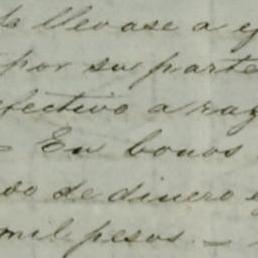 llevase a
por su parte
efectivo a
- En bonos
de dinero
mil pesos. -